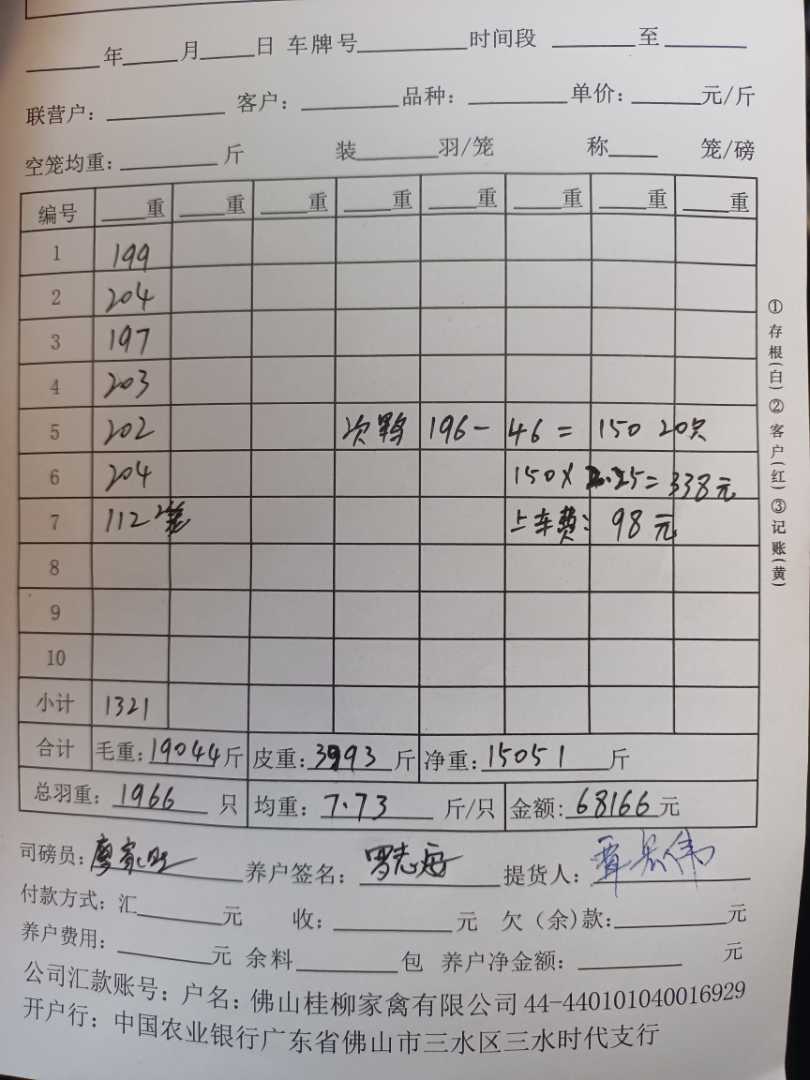 ____年____月____日 车牌号________时间段 ______至______
联营户：________ 客户：________品种：________单价：______元/斤
空笼均重：________斤 装______羽/笼 称____ 笼/磅
编号 ____重 ____重 ____重 ____重 ____重 ____重 ____重 ____重
1 199
2 204
3 197
4 203
5 202 次鸭 196- 46= 150 20只
6 204 150×2.25=338元
7 112 2笼 上车费：98元
8
9
10
小计 1321
合计 毛重：19044斤 皮重：3993斤 净重：15051斤
总羽重：1966只 均重：7.73斤/只 金额：68166元
司磅员：廖家旺 养户签名：罗志 提货人：覃 伟
付款方式：汇______元 收：________元 欠（余)款：________元
养户费用：______元 余料______包 养户净金额：________元
公司汇款账号：户名：佛山桂柳家禽有限公司 44-440101040016929
开户行：中国农业银行广东省佛山市三水区三水时代支行
①存根(白)②客户(红)③记账(黄)